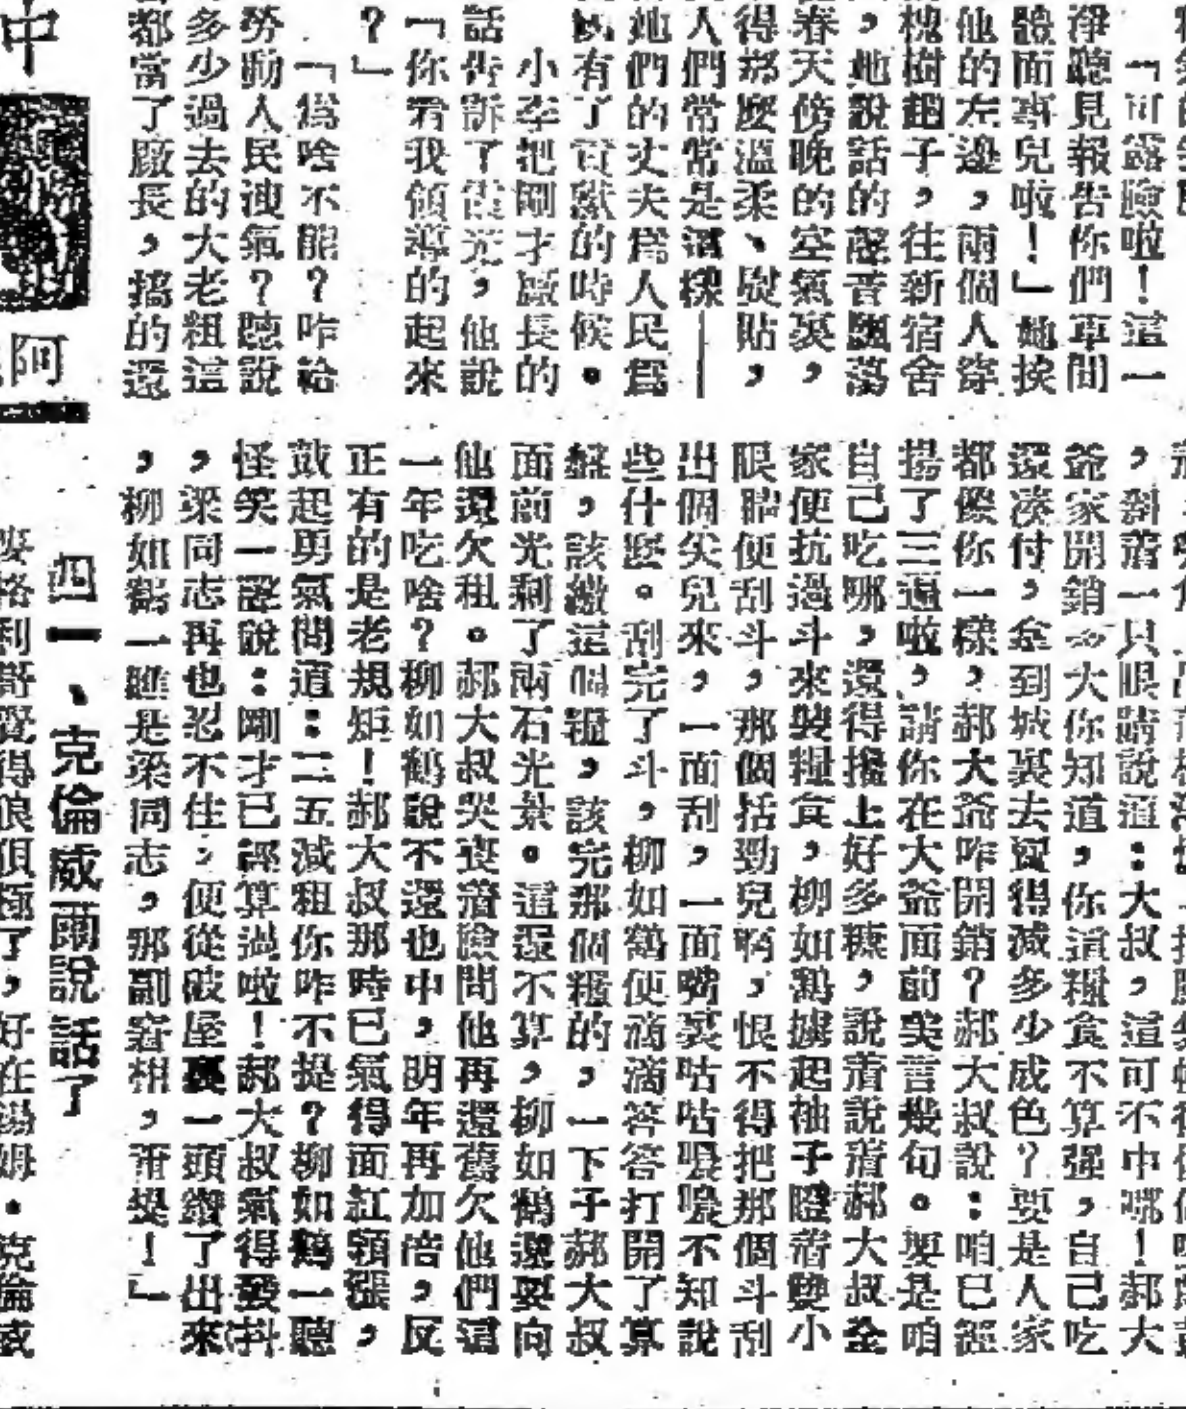 「可露臉啦！這一
淨聽見報告你們車間
體面事兒啦！」她挨
他的左邊，兩個人穿
槐樹趟子，往新宿舍
，她說話的聲音飄蕩
春天傍晚的空氣裏，
得那麼溫柔、熨貼，
人們常常是這樣——
她們的丈夫爲人民爲
有了貢獻的時候。
小李把剛才廠長的
話告訴了霞光，他說
「你看我領導的起來
？」
「爲啥不能？咋給
勞動人民洩氣？聽說
多少過去的大老粗這
都當了廠長，搞的還
中
阿
，斜着一只眼睛說道：大叔，這可不中哪！郝大
爺家開銷多大你知道，你這糧食不算强，自己吃
還湊付，拿到城裏去賣得減多少成色？要是人家
都像你一樣，郝大爺咋開銷？郝大叔說：咱已經
揚了三遍啦，請你在大爺面前美言幾句。要是咱
自己吃哪，還得攙上好多糠，說着說着郝大叔全
家便抗過斗來裝糧食，柳如鶴擄起袖子瞪着雙小
眼睛便刮斗，那個括勁兒啊，恨不得把那個斗刮
出個尖兒來，一面刮，一面嘴裏咕咕噥噥不知說
些什麽。刮完了斗，柳如鶴便滴滴答答打開了算
盤，該繳這個糧，該完那個糧的，一下子郝大叔
面前光剩了兩石光景。這還不算，柳如鶴還要向
他還欠租。郝大叔哭喪着臉問他再還舊欠他們這
一年吃啥？柳如鶴說不還也中，明年再加倍，反
正有的是老規矩！郝大叔那時已氣得面紅頸漲，
鼓起勇氣問道：二五減租你咋不提？柳如鶴一聽
怪笑一聲說：剛才已經算過啦！郝大叔氣得發抖
，梁同志再也忍不住，便從破屋裏一頭鑽了出來
，柳如鶴一瞧是梁同志，那副窘相，甭提！」
四一、克倫威爾說話了
麥格利哥覺得狼狽極了，好在湯姆・克倫威